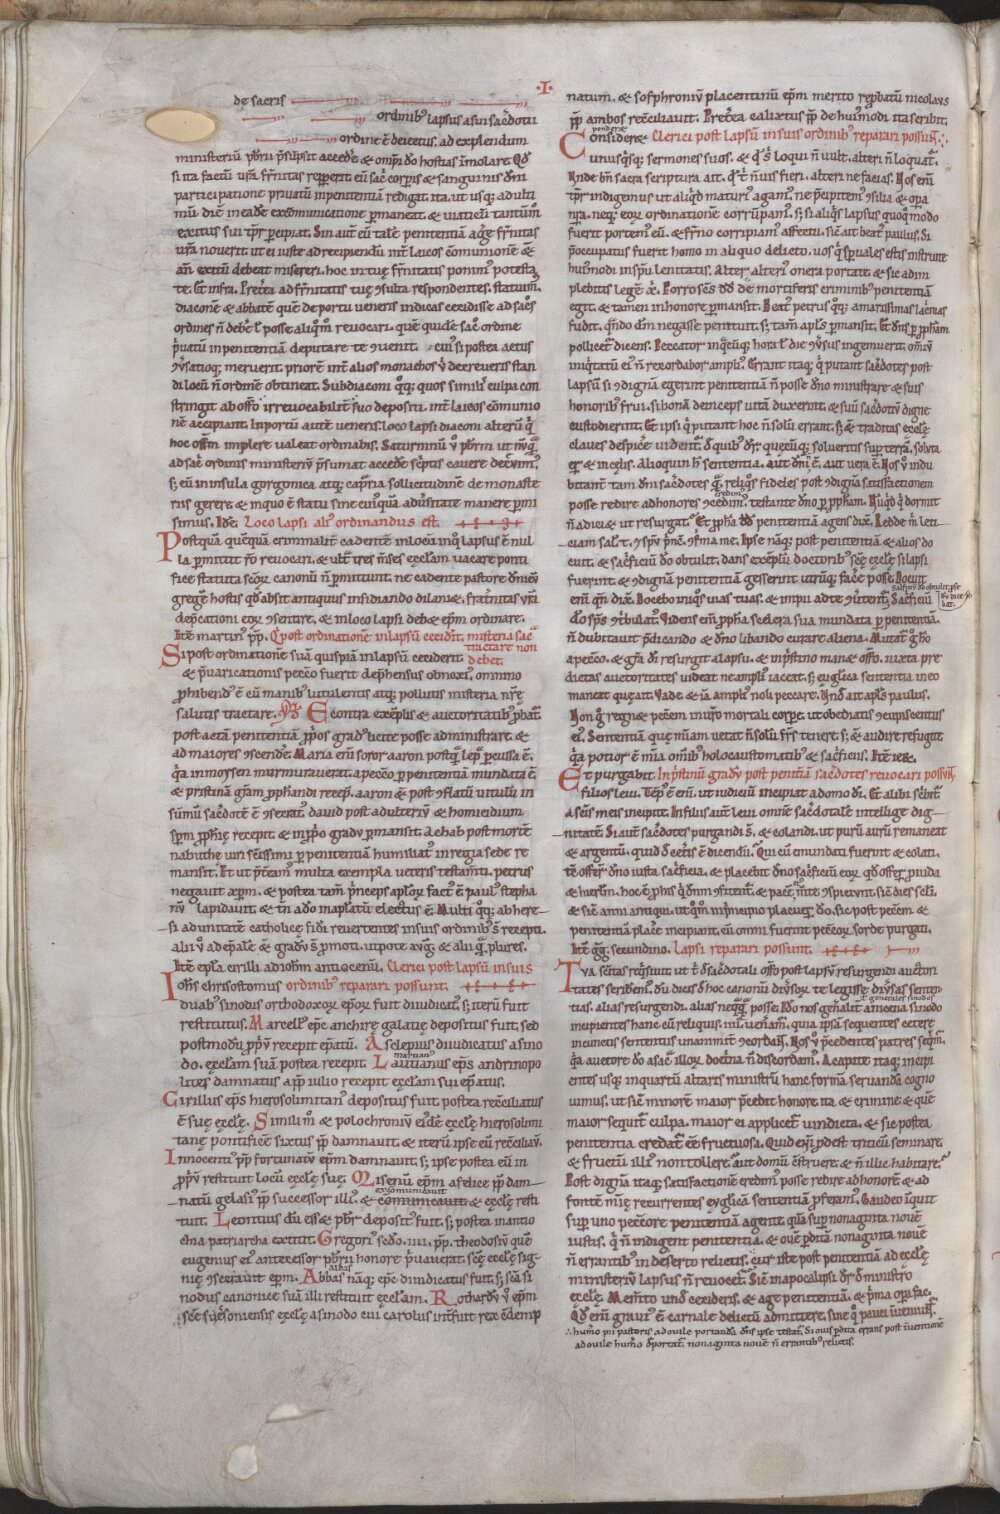 ·I·
de sacris
ordinib; lapsus a sui sac̄dotii
ordine ē deiectus. ad explendum
ministeriū p̄bri p̄supsit accedē & om̄pi dō hostias īmolare. Qd̄
si ita factū ur̄a fr̄nitas repperit. eū sac̄ corp̄is & sanguinis dn̄i
participatione priuatū in penitentiā redigat. ita. ut usq; ad ulti
mū diē in eadē excōmunicatione p̄maneat. & uiaticū tantūm̄
exitus sui tp̄r p̄cipiat. Sin aut̄ eū talē penitentiā ag̓e fr̄nitas
ur̄a nouerit. ut ei iuste ad recipiendū int̄ laicos cōmunionē &
an̄ exitū debeat misereri. hoc in tuę fr̄nitatis ponim̓ potesta
te. Et infra. Pret̓ea ad fr̄nitatis tuę ꝯsulta respondentes. statuim̓.
diaconē & abbatē quē de portu ueneris indicas cecidisse. ad sac̓os
ordines n̄ debe ł posse aliqm̓ reuocari. quē quidē sac̓ ordine
p̓uatū in penitentiā deputare te ꝯuenit. cui̓ si postea actus
ꝯ̓satioq; meruerit. priorē int̄ alios monachos ꝰ decreueris stan
di locū n̄ ordinē obtineat. Subdiaconi qq; quos similiꝰ culpa con
stringit ab offō irreuocabilit̄ suo depositi. int̄ laicos cōmunio
nē accipiant. In portu autē ueneris. loco lapsi diaconi alterū q̓
hoc off̄m implere ualeat ordinabis. Saturninū ꝰ p̄brm ut nūq̄
ad sac̓ ordinis ministeriū p̄sumat accedē sc̓ptis cauere decꝰnim̓.
s; eū in insula gorgonica atq; capria sollicitudinē de monaste
riis gerere. & in quo ē statu sine cui̓quā adu̓sitate manere p̄mi
simus. Idē. Loco lapsi ali̓ ordinandus est.
Postquā quēquā criminalit̄ cadentē in locū in q̓ lapsus ē nul
la p̄mittit rō reuocari. & ult̓ tres m̄ses ęccłam uacare ponti
fice statuta sc̄oꝝ canonū n̄ p̄mittunt. ne cadente pastore dn̄icū
gregē hostis qd̄ absit antiquus insidiando dilaniet. frat̓nitas ur̄a
dep̄cationi eoꝝ ꝯsentire. & in loco lapsi deb& ep̄m ordinare.
Itē martin̓ pp̄. Q̓ post ordinationē in lapsū cecidit̄. misteria sac̓
Si post ordinationē suā quispiā in lapsū ceciderit. tractare non debet.
& p̓uaricationis pecc̓o fuerit dep̄hensus obnoxi̓. omnino
ꝓhibend̓ ē eū manib; lutulentis atq; pollutis misteria nr̄ę
salutis tractare. E contra exēplis & auctoritatib; ꝓbat̄.
post actā penitentiā ꝓp̓os grad̓ licite posse administrare. &
ad maiores ꝯscendē. Maria eni soror aaron postq̄ lep̄ p̄cussa ē.
q̓a in moysen murmurauerat. a pecc̓o ꝑ penitentiā mundata ē.
& pristinā gr̄am ꝓph̄andi recep̄. aaron & post ꝯflatū uitulū in
sūmū sac̓dotē ē ꝯsecrat̄. dauid post adulteriū & homicidium
sp̄m ꝓph̄ię recepit. & in p̓pō gradu p̄mansit. Achab post mortē
nabuthę uiri sc̄issimi ꝑ penitentiā humiliat̓ in regia sede re
mansit. Et ut p̄t̓eam̓ multa exempla ueteris testam̄ti. petrus
negauit xp̄m. & postea tam̄ p̓nceps ap̄loꝝ fact̓ ē. paul̓ stepha
nū lapidauit. & tn̄ a dō in ap̄latū electus ē. Multi qq; ab here
si ad unitatē catholicę fidi reuertentes in suis ordinib; s̄ recepti.
alii ꝰ ad ep̄alē ē gradū s̄ ꝓmoti. utpote aug̓. & alii q̄ plures.
Itē ep̄la cirilli ad ioh̄m antiocenū. Clerici post lapsū in suis
Ioh̄s chrisostomus ordinib; reparari possunt.
duab; sinodis orthodoxoꝝ ep̄oꝝ fuit diiudicat̓. s; iterū fuit
restitutus. Marcell̓ ep̄c anchirę galatię depositus fuit. sed
postmodū ꝓp̓ū recepit ep̄atū. Asclepius diiudicatus a sino
do. ęccłam suā postea recepit. Lautianus ep̄s andrinopo
litēs damnatus a pp̄ iulio recepit ęccłam sui ep̄atus.
Cirillus ep̄s hierosolimitan̓ depositus fuit. postea recc̄iliatus
ē suę ęccłę. Simili m̓ & polochroniū ei̓dē ęccłę hierosolimi
tanę pontificē sixtus pp̄ damnauit. & iterū ipse eū recc̄iliaū.
Innocenti̓ pp̄ fortunatū ep̄m damnauit. s; ipse postea eū in
ꝓp̓ū restituit locū ęccłę suę. Misenū ep̄m a felice pp̄ dam
natū gelasi̓ pp̄ successor illi̓. & comunicauit & ęccłę resti
tuit. Leontius dū eēt & p̄br deposit̓ fuit. s; postea in antio
chia patriarcha extitit. Gregori̓ scd̄o .iiii. pp̄. theodosiū quē
eugenius ei̓ antecessor p̄brii honore p̓uauerat. sc̄ę ęccłę sig
nię ꝯsecrauit ep̄m. Abbas nāq; ep̄c diiudicatus fuit. s; sc̄a si
nodus canonice suā illi restituit ęccłam. Rothardū ꝰ ep̄m
sc̄ę suessoniensis ęccłę a sinodo cui carolus int̄fuit rex ꝯdemp
natum. & sofphroniū placentinū ep̄m merito reꝓbatū nicolaus
pp̄ ambos recc̄iliauit. Pret̓ea calixtus pp̄ de hui̓modi ita scribit.
Considere Clerici post lapsū in suis ordinib; reparari possūt.
unusq̓sq; sermones suos. & q̓ s̓ loqui n̄ uult. alteri n̄ loquat̄.
Unde bn̄ sacra scriptura ait. q̓ t̓ n̄ uis fieri. alteri ne facias. Nos eni
tp̄r indigemus ut aliq̓d maturi̓ agam̓. ne p̄cipitem̓ ꝯsilia & op̄a
nr̄a. neq; eoꝝ ordinationē corrūpam̓. s; si aliq̓s lapsus quoq̓modo
fuerit portem̓ eū. & fr̄no corripiam̓ affectu. sic̄ ait beat̓ paulus. Si
p̄occupatus fuerit homo in aliquo delicto. uos q̓ sp̄uales estis instruite
hui̓modi in sp̄u lenitatis. Alter alteri̓ onera portate. & sic adim
plebitis legē x̄. Porro sc̄s dd̄ de mortiferis criminib; penitentiā
egit. & tamen in honore p̄mansit. Beat̓ petrus qq; amarissimas lac̓mas
fudit. q̄ndo dn̄m negasse penituit. s; tam̄ apl̄s p̄mansit. Et dn̄s ꝑ ꝓpham
pollicet̄ dicens. Peccator in q̓cūq; hora ł die ꝯ̓sus ingemuerit. om̄iū
iniq̓tatū ei̓ n̄ recordabor ampli̓. Errant itaq; q̓ putant sac̓dotes post
lapsū si ꝯdignā egerint penitentiā n̄ posse dn̄o ministrare & suis
honorib; frui. si bonā deinceps uitā duxerint. & suū sac̓dotiū digne
custodierint. Et ipsi q̓ putant hoc n̄ solū errant. s; & traditas ęccłę
claues despicē uident̄. d̄ quib; dr̄. quęcūq; solueritis sup̄ terrā. soluta
er̄ & in cęlis. Alioquin h̄ sententia. aut dn̄i n̄ ē. aut uera ē. Nos ꝰ indu
bitant̄ tam dn̄i sac̓dotes q̄ reliq̓s fideles post ꝯdignā satisfactionem
posse redire ad honores ꝯcedim̓. testante dn̄o ꝑ ꝓpham. Nūqd̓ q̓ dormit
n̄ adiciet ut resurgat. Et ꝓph̄a dd̄ penitentiā agens dix̄. Redde m̓ leti
ciam sal̓ t̓. & sp̄u p̓nc̄. ꝯfirma me. Ipse nāq; post penitentiā & alios do
cuit. & sac̓ficiū dō obtulit. dans exēplū doctorib; sc̄ę ęccłę si lapsi
fuerint. & ꝯdignā penitentiā gesserint utrūq; facē posse. Docuit
eni qn̄ dix̄. Docebo iniq̓s uias tuas. & impii ad te ꝯ̓tent̄. Sac̓ficiū
dō sp̄s ꝯtbulat̓. Uidens eni ꝓpha scelera sua mundata ꝑ penitentiā.
n̄ dubitauit p̄dicando & dn̄o libando curare aliena. Mutat̄ q̄ hō
a pecc̓o. & gr̄a dī resurgit a lapsu. & in p̓stino man& offō. iuxta pre
dictas auctoritates uideat ne ampli̓ iaceat. s; eugłica sententia in eo
maneat quę ait. Uade & iā ampli̓ noli peccare. Un̄ ait apl̄s paulus.
Non q̓ regn& pecc̄m in ur̄o mortali corp̄e. ut obediatis ꝯcupiscentiis
ei̓. Sententiā quę m̄iam uetat n̄ solū fr̄s tenere. s; & audire refugite.
q̓a potior ē mīa om̄ib; holocaustomatib; & sac̓ficiis. Itē iero.
Et purgabit In p̓stinū gradū post penit̄tiā sac̓dotes reuocari possūt.
filios leui. Tēp̓ ē eni. ut iudiciū incipiat a domo dī. Et alibi sc̓bit̄.
a sc̄is meis incipite. In filiis aut̄ leui omnē sac̓dotalē intellige dig
nitatē. Si aut̄ sac̓dotes purgandi s̄. & colandi. ut purū aurū remaneat
& argentū. quid d̄ cet̓is ē dicendū. Qui cū emundati fuerint & colati.
tc̄ offer̄ dn̄o iusta sac̓ficia. & placebit dn̄o sac̓ficiū eoꝝ qd̄ offer̄ ꝓ iuda
& hierłm. hoc ē ꝓ his q̓ dn̄m ꝯfitent̄. & pacē m̄te ꝯspiciunt. sic̄ dies scłi.
& sic̄ anni antiqui. ut qm̄ in p̓ncipio placuer̄ dō. sic post pecc̄m &
penitentiā placē incipiant. cū omni fuerint pecc̓oꝝ sorde purgati.
Itē gg̓. secundino. Lapsi reparari possunt.
Tua sc̄itas req̓siuit. ut t̓ d̄ sac̓dotali offō post lapsū resurgendi auctori
tates scribem̓. dū dicis d̄ hoc canonū diu̓soꝝ te legisse diu̓sas senten
tias. alias resurgendi. alias neq̄q̄ posse. Ido nos gn̄alit̄ a nicena sinodo
incipientes hanc cū reliquis .iiii. uen̄am̓. quia ipsā sequentes cetere
in cūctis sententiis unanimit̄ ꝯcordant. Nos ꝰ p̄cedentes patres seq̓m̓.
q̓a auctore dō a sac̄ illoꝝ docť̄na n̄ discordam̓. A capite itaq; incipi
entes usq; in quartū altaris ministrū hanc formā seruandā cogno
uimus. ut sic̄ minorē maior p̄cedit honore. ita & crimine. & quē
maior sequit̄ culpa. maior ei applicet̄ uindicta. & sic postea
penitentia credat̄ eē fructuosa. Quid eni ꝓdest triticū seminare.
& fructū illi̓ non tollere. aut domū c̄struere. & n̄ illic habitare.
Post dignā itaq; satisfactionē credim̓ posse redire ad honorē. & ad
fontē mię recurrentes eugłica sententiā ꝓferam̓. Gaudeo inquit
sup̄ uno peccc̓ore penitentiā agente. quā sup̄ nonaginta nouē
iustis. q̓ n̄ indigent penitentia. & ouē ꝑditā nonaginta nouē
n̄ errantib; in deserto relictis. cur iste post penitentiā ad ęccłę
ministeriū lapsus n̄ reuocet̄. Sic̄ in apocalipsi dr̄ d̄ ministro
ęccłę. Mem̄to und̓ cecideris. & age penitentiā. & p̓ma op̄a fac.
Qd̄ eni graui̓ ē carnale delictū admittere. sine q̓ pauci inueniūt̄.
hum̓o pii pastoris ad ouile portanda dn̄s ipse testat̄. Si ouis ꝑdita errans post inuentionē
ad ouile hum̓o dꝓportat̄. nonaginta nouē n̄ errantib; relictis.